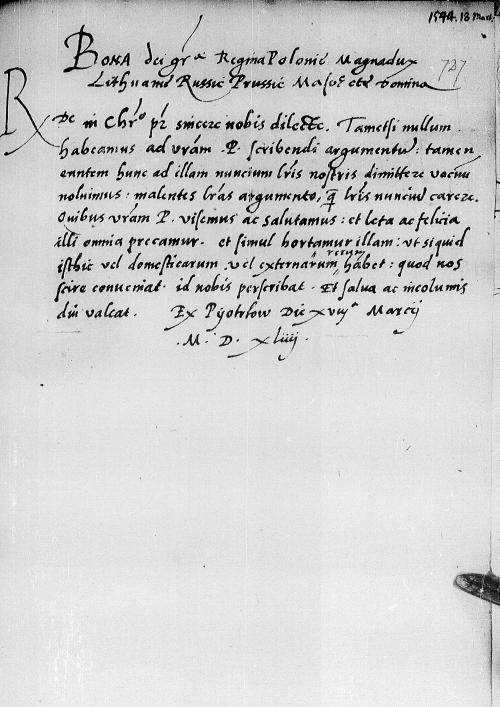 1544. 18 Mart.
BONA dei gr̃a Regina Polonie Magnadux
727
Lithuanie Russie Prussie Masoᵉ etc Domina
Rde in Chr̃o pr̃ sincere nobis dilecte. Tametsi nullum
habeamus ad vr̃am .P. scribendi argumentũ: tamen
euntem hunc ad illam nuncium lr̃is nostris dimittere vocuũ
noluimus: malentes lr̃as argumento, q̃ lr̃is nunciũ carere.
Quibus vr̃am P. visemus ac salutamus: et leta ac felicia
illi omnia precamur. et simul hortamur illam: vt siquid
rerum
isthic vel domesticarum vel externarum, habet: quod nos
scire conueniat. id nobis perscribat. Et salua ac incolumis
diu valeat. Ex Pyotrkow Die xviijᵃ Marcij
.M. D. xliiij.